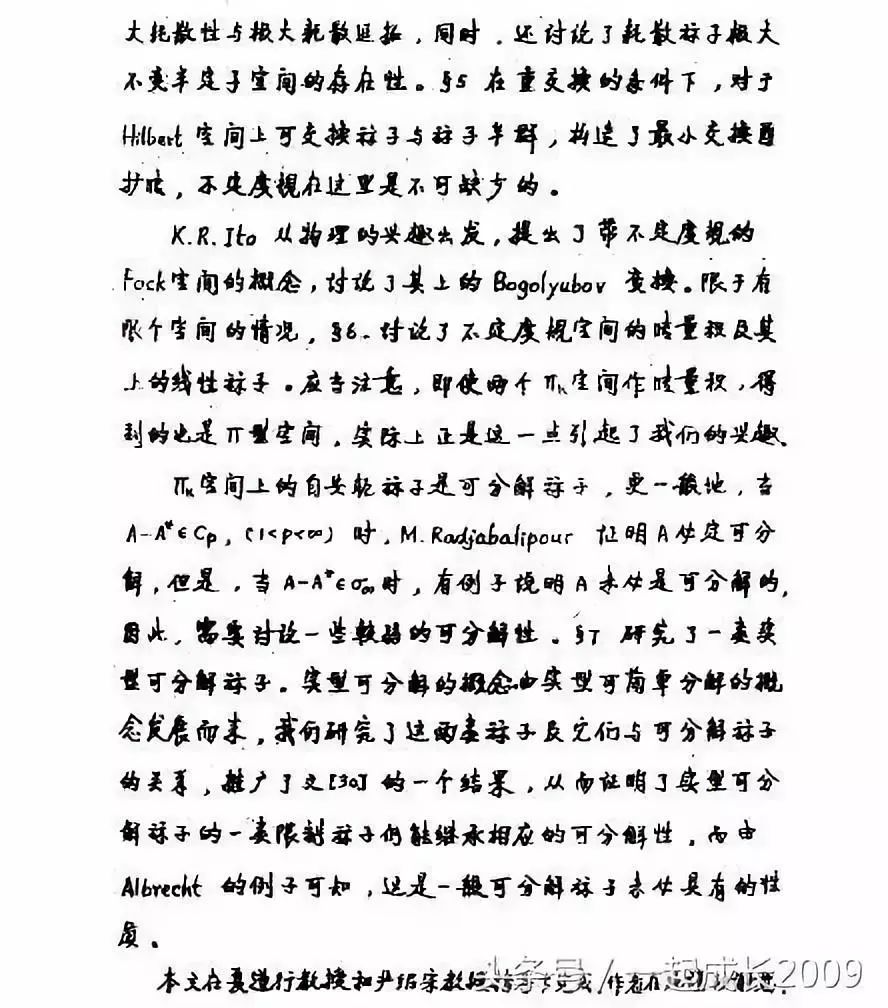 大耗散性与极大耗散延拓，同时，还讨论了耗散祘子极大
不变半定子空间的存在性。§5 在重交换的条件下，对于
Hilbert 空间上可交换祘子与祘子半群，构造了最小交换酉
扩张，不定度规在这里是不可缺少的。
K.R.Ito 从物理的兴趣出发，提出了带不定度规的
Fock空间的概念，讨论了其上的 Bogolyubov 变换。限于有
限个空间的情况，§6. 讨论了不定度规空间的张量积及其
上的线性祘子。应当注意，即使两个 Πκ 空间作张量积，得
到的也是Π型空间，实际上正是这一点引起了我们的兴趣。
Πκ空间上的自共轭祘子是可分解祘子，更一般地，当
A-A*∈Cp，(1<p<∞) 时，M. Radjabalipour 证明 A 必定可分
解，但是，当 A-A*∈σ∞时，有例子说明 A 未必是可分解的，
因此，需要讨论一些较弱的可分解性。§7 研究了一类实
型可分解祘子。实型可分解的概念由实型可简单分解的概
念发展而来，我们研究了这两类祘子及它们与可分解祘子
的关系，推广了文[30]的一个结果，从而证明了实型可分
解祘子的一类限制祘子仍能继承相应的可分解性，而由
Albrecht 的例子可知，这是一般可分解祘子未必具有的性
质。
本文在夏道行教授和严绍宗教授指导下完成，作者在
头条号/一起成长2009